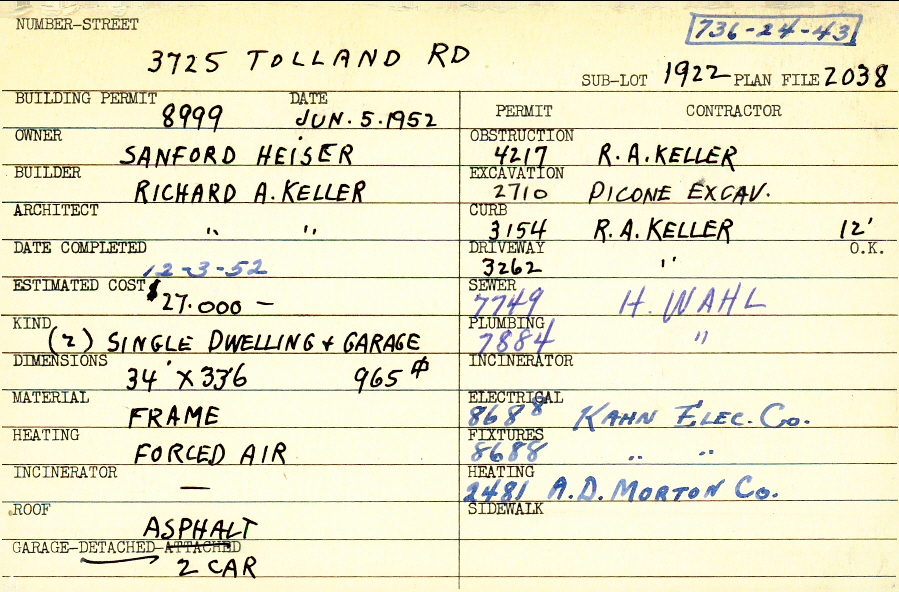 NUMBER-STREET
736-24-43
3725 TOLLAND RD
SUB-LOT 1922 PLAN FILE 2038
BUILDING PERMIT DATE
8999 JUN. 5. 1952
OWNER
SANFORD HEISER
BUILDER
RICHARD A. KELLER
ARCHITECT
" "
DATE COMPLETED
12-3-52
ESTIMATED COST
$27.000 —
KIND
(2) SINGLE DWELLING + GARAGE
DIMENSIONS
34' X 336 965
MATERIAL
FRAME
HEATING
FORCED AIR
INCINERATOR
—
ROOF
ASPHALT
GARAGE-DETACHED-ATTACHED
2 CAR
PERMIT CONTRACTOR
OBSTRUCTION
4217 R. A. KELLER
EXCAVATION
2710 PICONE EXCAV.
CURB
3154 R. A. KELLER 12'
DRIVEWAY O.K.
3262 "
SEWER
7749 H. WAHL
PLUMBING
7884 "
INCINERATOR
ELECTRICAL
8688 KAHN ELEC. CO.
FIXTURES
8688 " "
HEATING
2481 A.D. MORTON CO.
SIDEWALK